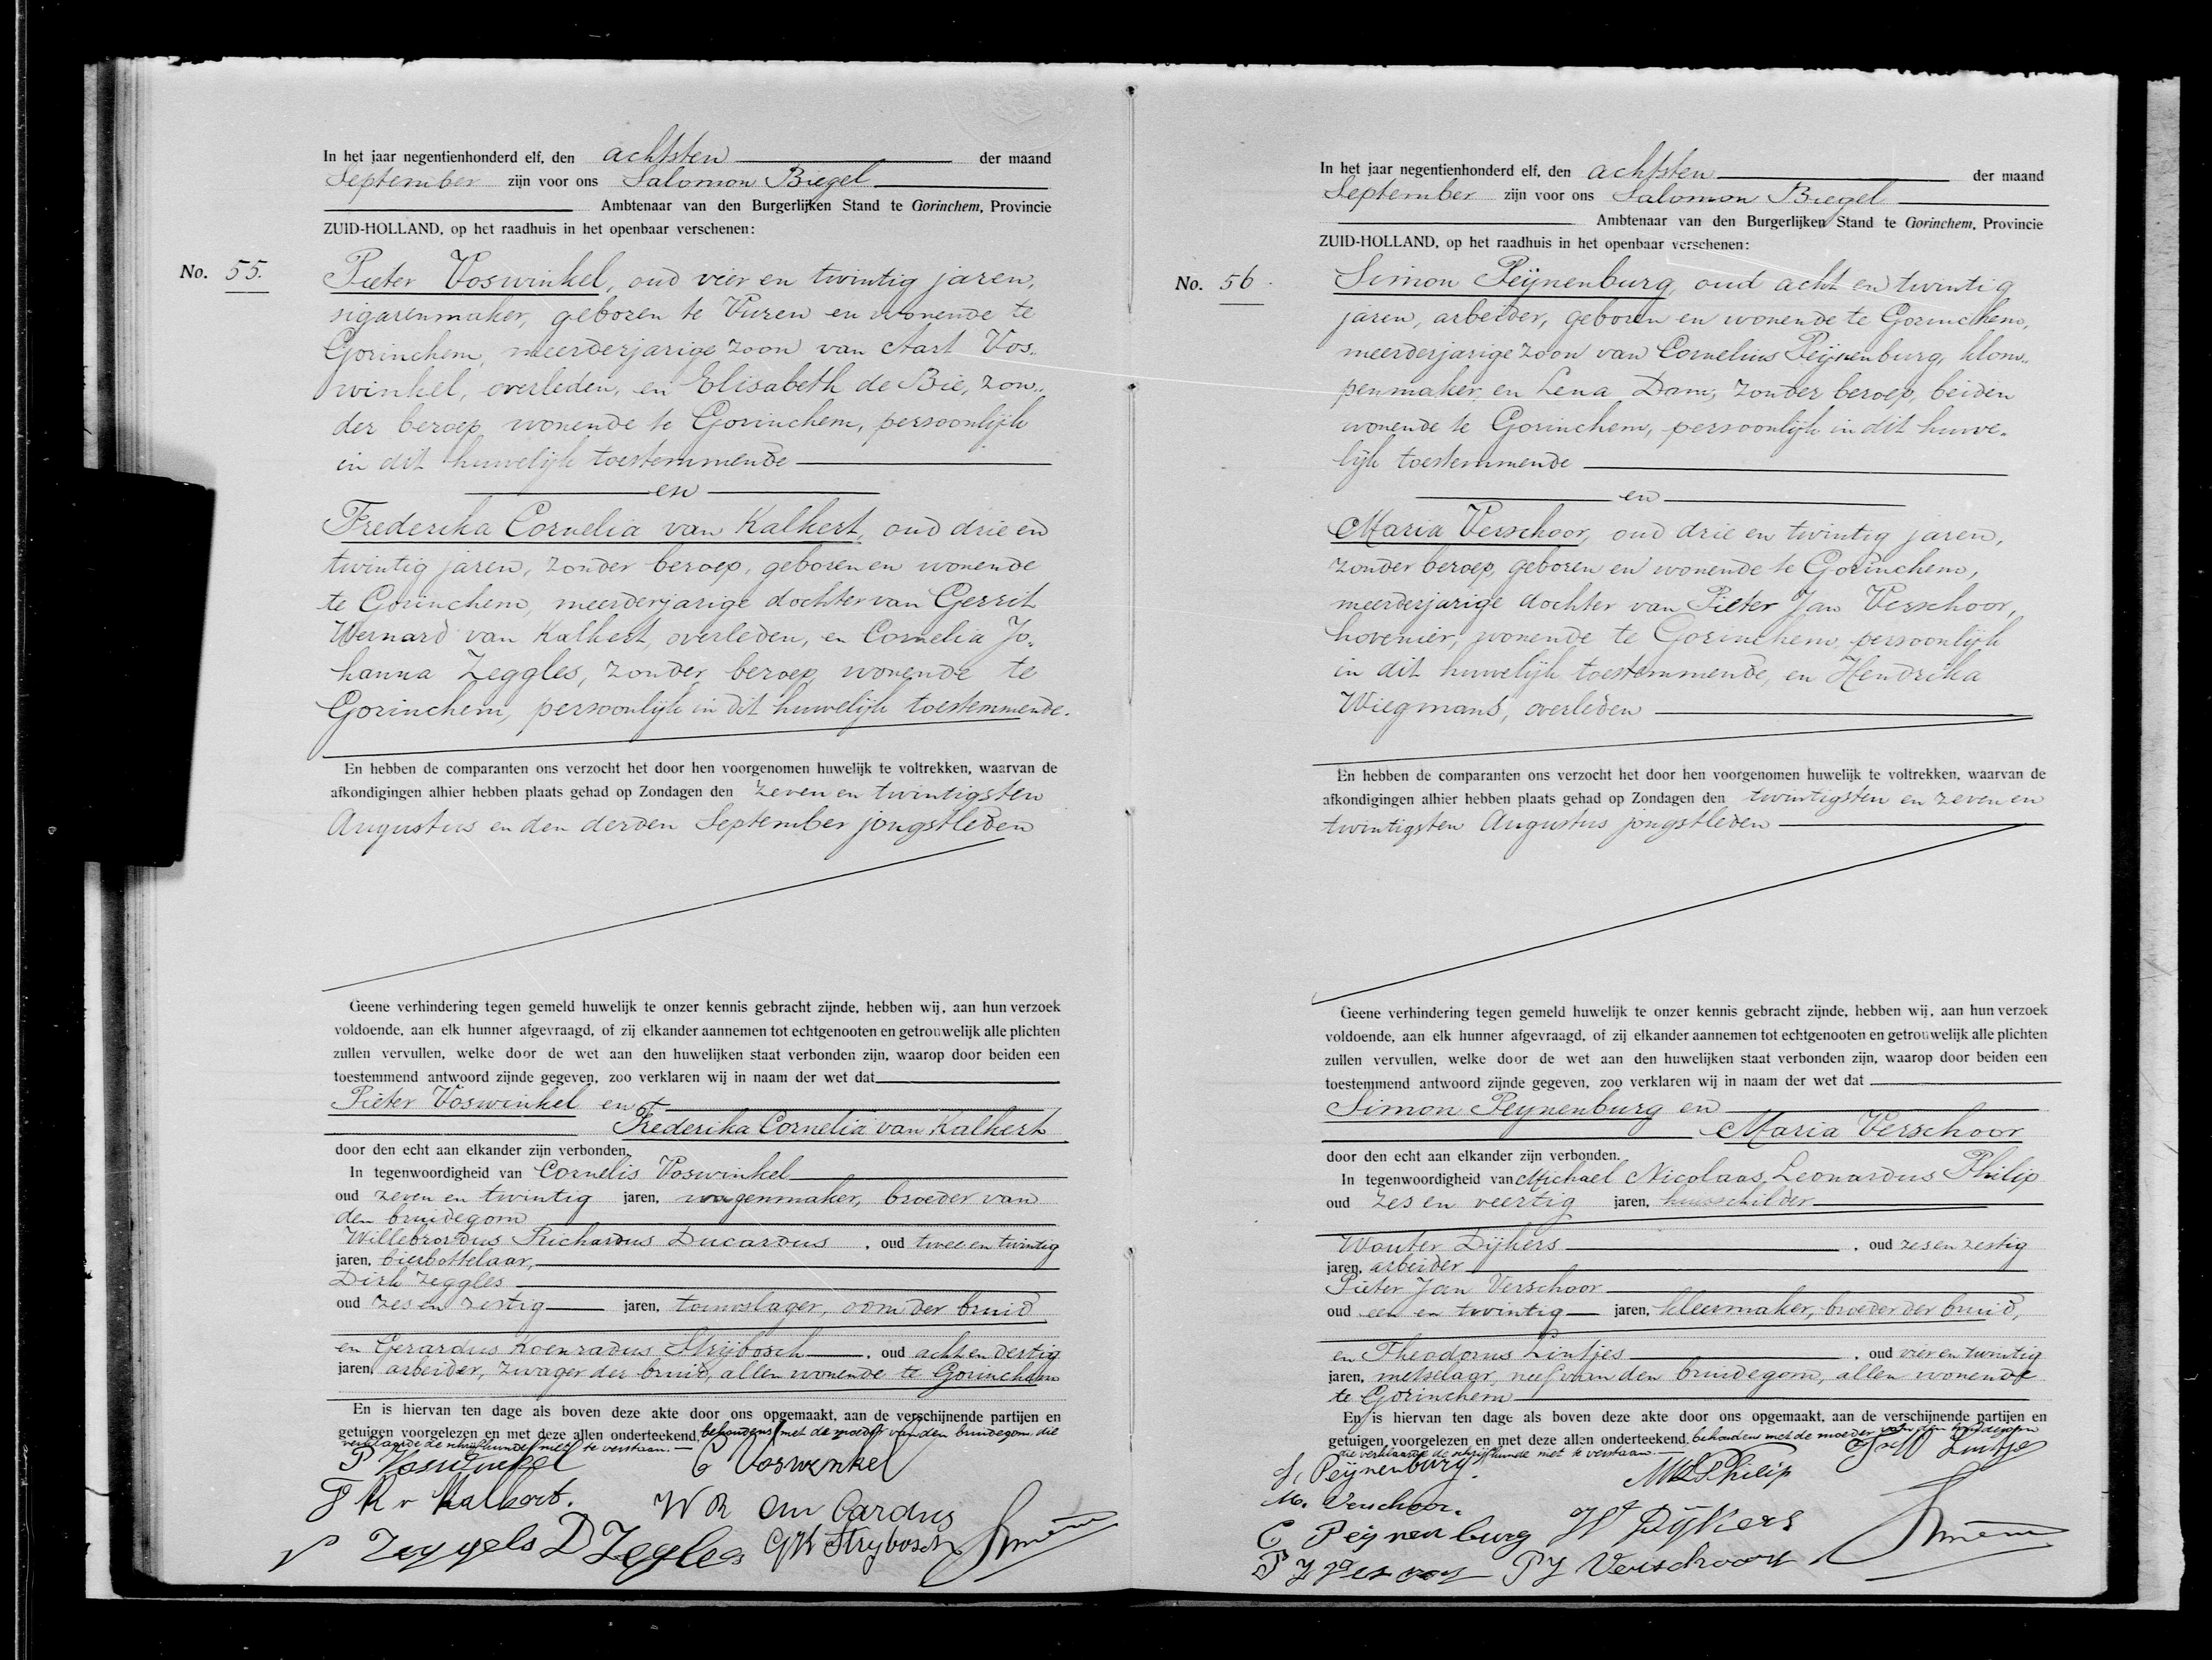 In het jaar negentienhonderd elf, den achtsten der maand
September zijn voor ons Salomon Biegel
Ambtenaar van den Burgerlijken Stand te Gorinchem, Provincie
ZUID-HOLLAND, op het raadhuis in het openbaar verschenen:
No. 55.
Pieter Voswinkel, oud vier en twintig jaren,
sigarenmaker, geboren te Vuren en wonende te
Gorinchem, meerderjarige zoon van Aart Vos„
winkel, overleden, en Elisabeth de Bie, zon„
der beroep wonende te Gorinchem, persoonlijk
in dit huwelijk toestemmende
en
Frederika Cornelia van Kalkert, oud drie en
twintig jaren, zonder beroep, geboren en wonende
te Gorinchem, meerderjarige dochter van Gerrit
Wernard van Kalkert, overleden, en Cornelia Jo„
hanna Zeggles, zonder beroep, wonende te
Gorinchem, persoonlijk in dit huwelijk toestemmende.
En hebben de comparanten ons verzocht het door hen voorgenomen huwelijk te voltrekken, waarvan de
afkondigingen alhier hebben plaats gehad op Zondagen den zeven en twintigsten
Augustus en den derden September jongstleden
Geene verhindering tegen gemeld huwelijk te onzer kennis gebracht zijnde, hebben wij, aan hun verzoek
voldoende, aan elk hunner afgevraagd, of zij elkander aannemen tot echtgenooten en getrouwelijk alle plichten
zullen vervullen, welke door de wet aan den huwelijken staat verbonden zijn, waarop door beiden een
toestemmend antwoord zijnde gegeven, zoo verklaren wij in naam der wet dat
Pieter Voswinkel en
Frederika Cornelia van Kalkert
door den echt aan elkander zijn verbonden.
In tegenwoordigheid van Cornelis Voswinkel
oud zeven en twintig jaren, wagenmaker, broeder van
den bruidegom
Willebrordus Richardus Ducardus, oud twee en twintig
jaren, bierbottelaar,
Dirk Zeggles
oud zes en zestig jaren, touwslager, oom der bruid
en Gerardus Koenradus Strijbosch, oud acht en dertig
jaren, arbeider, zwager der bruid, allen wonende te Gorinchem
En is hiervan ten dage als boven deze akte door ons opgemaakt, aan de verschijnende partijen en
getuigen voorgelezen en met deze allen onderteekend, behoudens met de moeder van den bruidegom die
verklaarde de schrijfkunde niet te verstaan.
P Voswinkel C Voswinkel
F K v Kalkert.
Zeggels D Zegles GK Strijbosch
In het jaar negentienhonderd elf, den achtsten der maand
September zijn voor ons Salomon Biegel
Ambtenaar van den Burgerlijken Stand te Gorinchem, Provincie
ZUID-HOLLAND, op het raadhuis in het openbaar verschenen:
No. 56.
Simon Peijnenburg, oud acht en twintig
jaren, arbeider, geboren en wonende te Gorinchem,
meerderjarige zoon van Cornelius Peijnenburg, klom„
penmaker, en Lena Dam, zonder beroep, beiden
wonende te Gorinchem, persoonlijk in dit huwe„
lijk toestemmende
en
Maria Verschoor, oud drie en twintig jaren,
zonder beroep, geboren en wonende te Gorinchem,
meerderjarige dochter van Pieter Jan Verschoor,
hovenier, wonende te Gorinchem, persoonlijk
in dit huwelijk toestemmende, en Hendrika
Wiegmans, overleden
En hebben de comparanten ons verzocht het door hen voorgenomen huwelijk te voltrekken, waarvan de
afkondigingen alhier hebben plaats gehad op Zondagen den twintigsten en zeven en
twintigsten Augustus jongstleden
Geene verhindering tegen gemeld huwelijk te onzer kennis gebracht zijnde, hebben wij, aan hun verzoek
voldoende, aan elk hunner afgevraagd, of zij elkander aannemen tot echtgenooten en getrouwelijk alle plichten
zullen vervullen, welke door de wet aan den huwelijken staat verbonden zijn, waarop door beiden een
toestemmend antwoord zijnde gegeven, zoo verklaren wij in naam der wet dat
Simon Peijnenburg en
Maria Verschoor
door den echt aan elkander zijn verbonden.
In tegenwoordigheid van Michael Nicolaas Leonardus Philip
oud zes en veertig jaren, huisschilder
Wouter Dijkers, oud zes en zestig
jaren, arbeider
Pieter Jan Verschoor
oud een en twintig jaren, kleermaker, broeder der bruid,
en Theodorus Lintjes, oud vier en twintig
jaren, metselaar, neef van den bruidegom, allen wonende
te Gorinchem
En is hiervan ten dage als boven deze akte door ons opgemaakt, aan de verschijnende partijen en
getuigen voorgelezen en met deze allen onderteekend, behoudens met de moeder van den bruidegom
die verklaarde de schrijfkunde niet te verstaan
S. Peijnenburg. Philip Lintjes
M. Verschoor.
C Peijnenburg W Dijkers
PJ Verschoor